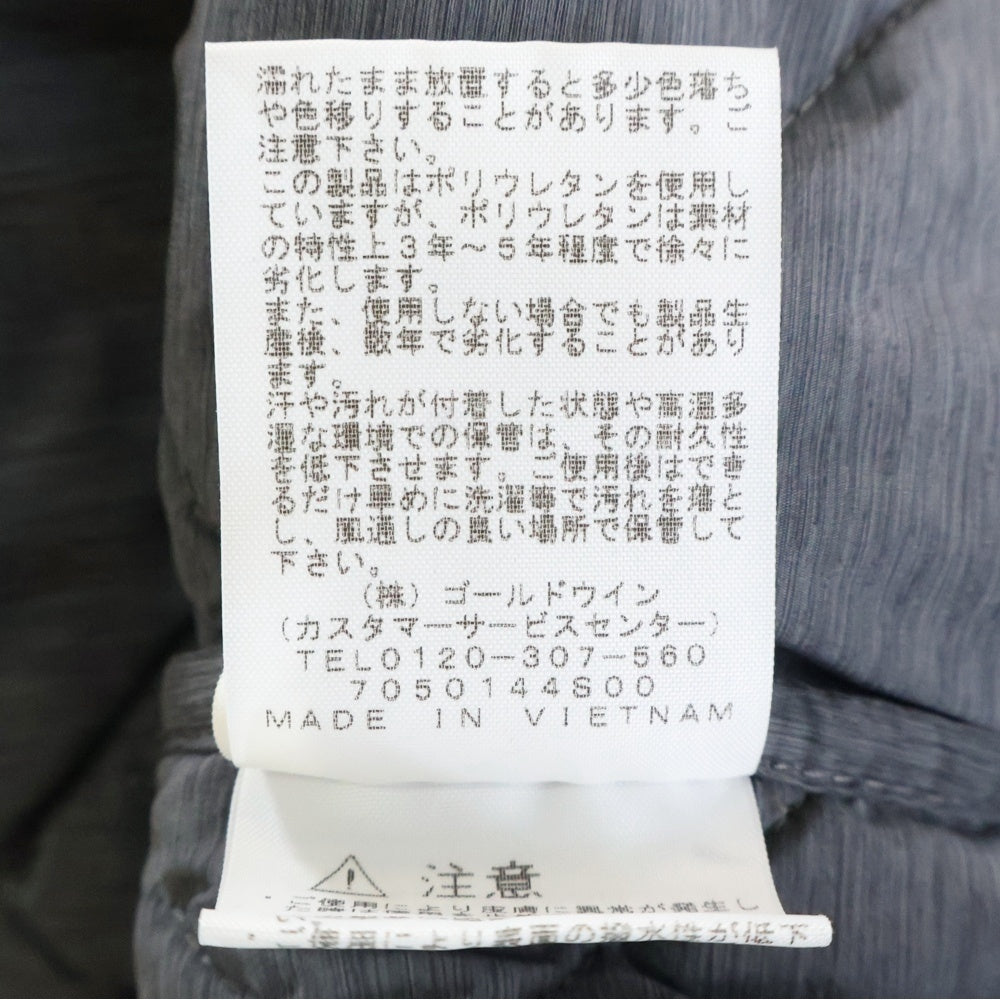 濡れたまま放置すると多少色落ち
や色移りすることがあります。ご
注意下さい。
この製品はポリウレタンを使用し
ていますが、ポリウレタンは素材
の特性上3年～5年程度で徐々に
劣化します。
また、使用しない場合でも製品生
産後、数年で劣化することがあり
ます。
汗や汚れが付着した状態や高温多
湿な環境での保管は、その耐久性
を低下させます。ご使用後はでき
るだけ早めに洗濯等で汚れを落と
し、風通しの良い場所で保管して
下さい。
(株) ゴールドウイン
(カスタマーサービスセンター)
TEL0120-307-560
7050144S00
MADE IN VIETNAM
注意